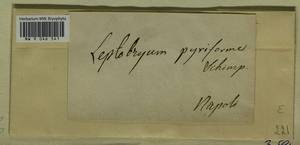 Herbarium MW, Bryophyta
Leptobryum pyriforme
Schimp.
Napoli
221